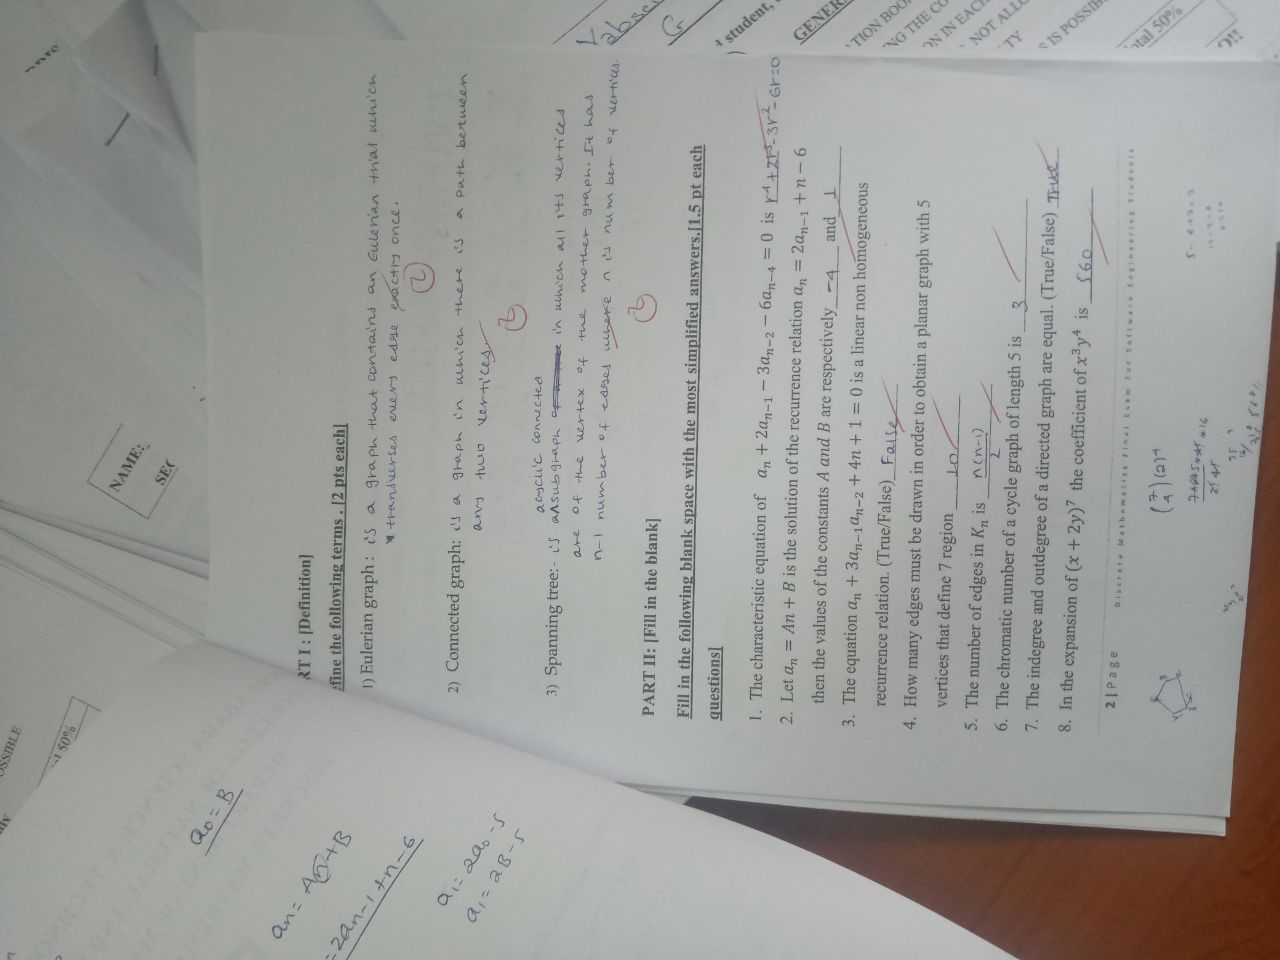 RT I : [Definition]
efine the following terms . [2 pts each]
1) Eulerian graph : is a graph that contains an Eulerian trial which
transverses every edge exactly once.
2
2) Connected graph: is a graph in which there is a path between
any two vertices
2
acyclic connected
3) Spanning tree:- is a subgraph in which all its vertices
are of the vertex of the mother graph. It has
n-1 number of edges where n is number of vertices.
2
PART II: [Fill in the blank]
Fill in the following blank space with the most simplified answers.[1.5 pt each
questions]
1. The characteristic equation of aₙ + 2aₙ₋₁ − 3aₙ₋₂ − 6aₙ₋₄ = 0 is r⁴+2r³-3r²-6r=0
2. Let aₙ = An + B is the solution of the recurrence relation aₙ = 2aₙ₋₁ + n − 6
then the values of the constants A and B are respectively -4 and 1
3. The equation aₙ + 3aₙ₋₁aₙ₋₂ + 4n + 1 = 0 is a linear non homogeneous
recurrence relation. (True/False) False
4. How many edges must be drawn in order to obtain a planar graph with 5
vertices that define 7 region 10
5. The number of edges in Kₙ is n(n-1)
2
6. The chromatic number of a cycle graph of length 5 is 3
7. The indegree and outdegree of a directed graph are equal. (True/False) True
8. In the expansion of (x + 2y)⁷ the coefficient of x³y⁴ is 560
2 | Page
Discrete Mathematics Final Exam for Software Engineering Students
(7
4) (2)⁴
NAME:
SEC
OSSIBLE
al 50%
a₀ = B
an = An+B
= 2an-1+n-6
a₁ = 2a₀-5
a₁ = 2B-5
G
student,
GENER
TION BOO
NG THE CO
ON IN EACH
NOT ALLO
TY
S IS POSSIB
otal 50%